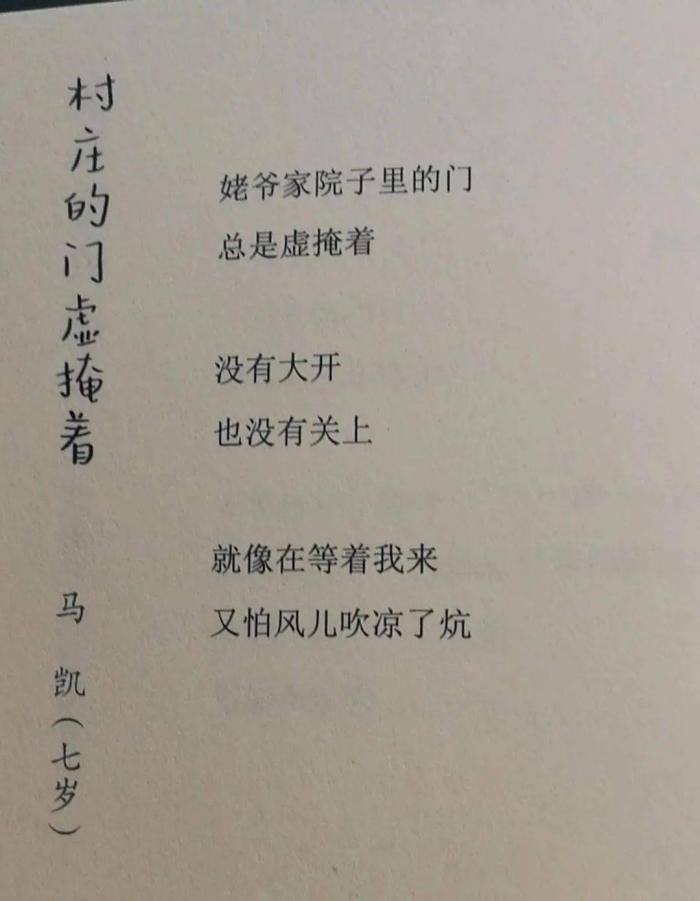 村庄的门虚掩着
马凯（七岁）
姥爷家院子里的门
总是虚掩着
没有大开
也没有关上
就像在等着我来
又怕风儿吹凉了炕